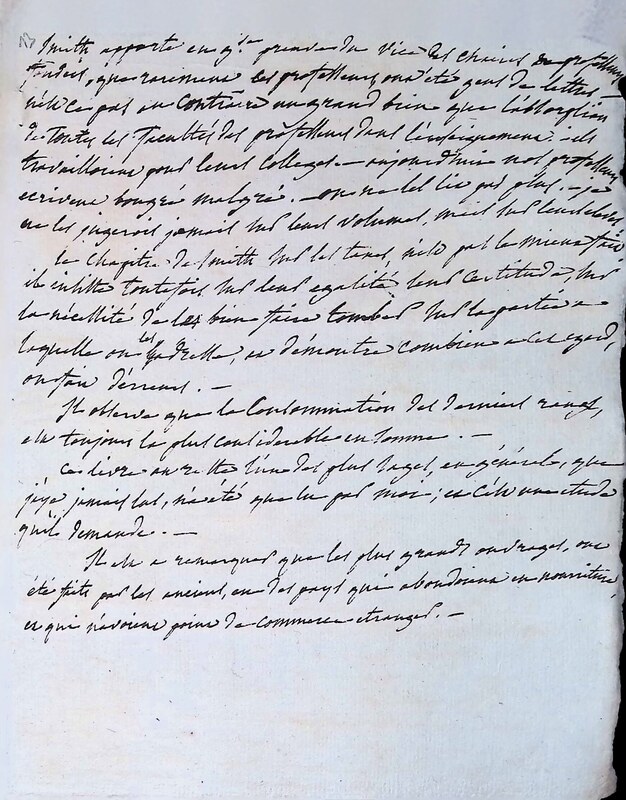 Smith apporte en gde preuve du vice des chaires de professeurs
fondées, que rarement les professeurs ont été gens de lettres —
n'est ce pas au contraire un grand bien que l'absorption
de toutes les facultés des professeurs dans l'enseignement. ils
travailloient pour leurs colleges. — aujourd'hui nos professeurs
ecrivent bongré malgré. — on ne les lit pas plus. — je
ne les jugerois jamais sur leurs volumes, mais sur leurs eleves.
Le chapitre de Smith sur les taxes, n'est pas le mieux fait
il insiste toutefois sur leur egalité leur certitude, sur
la nécessité de les bien faire tomber sur la partie a
laquelle on les adresse, et démontre combien a cet egard,
on fait d'erreurs. —
Il observe que la consommation des derniers rangs,
est toujours la plus considerable en somme. —
Ce livre au reste l'un des plus sages, en général, que
j'aye jamais lus, n'a été que lu par moi; et c'est une etude
qu'il demande. —
Il est a remarquer que les plus grands ouvrages, ont
été faits par les anciens, en des pays qui abondoient en nourriture,
et qui n'avoient point de commerce etranger. —